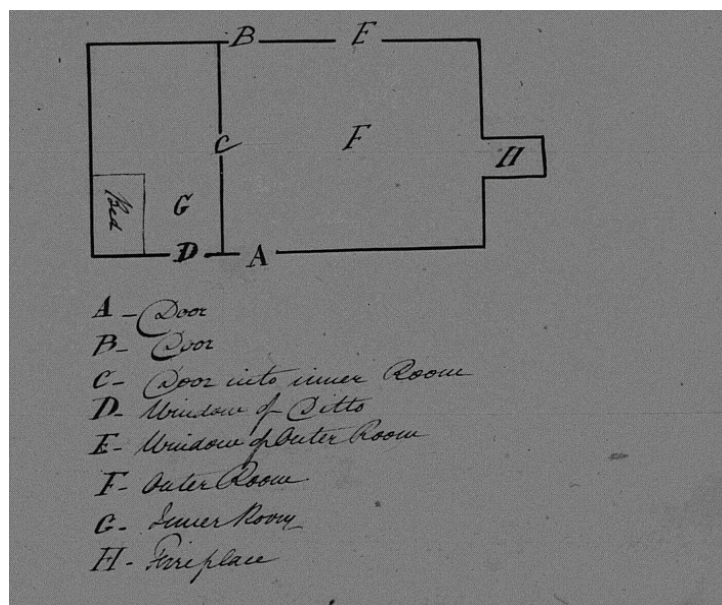 B E
C F H
Bed G
D A
A - Door
B - Door
C - Door into inner Room
D - Window of Ditto
E - Window of Outer Room
F - Outer Room
G - Inner Room
H - Fireplace